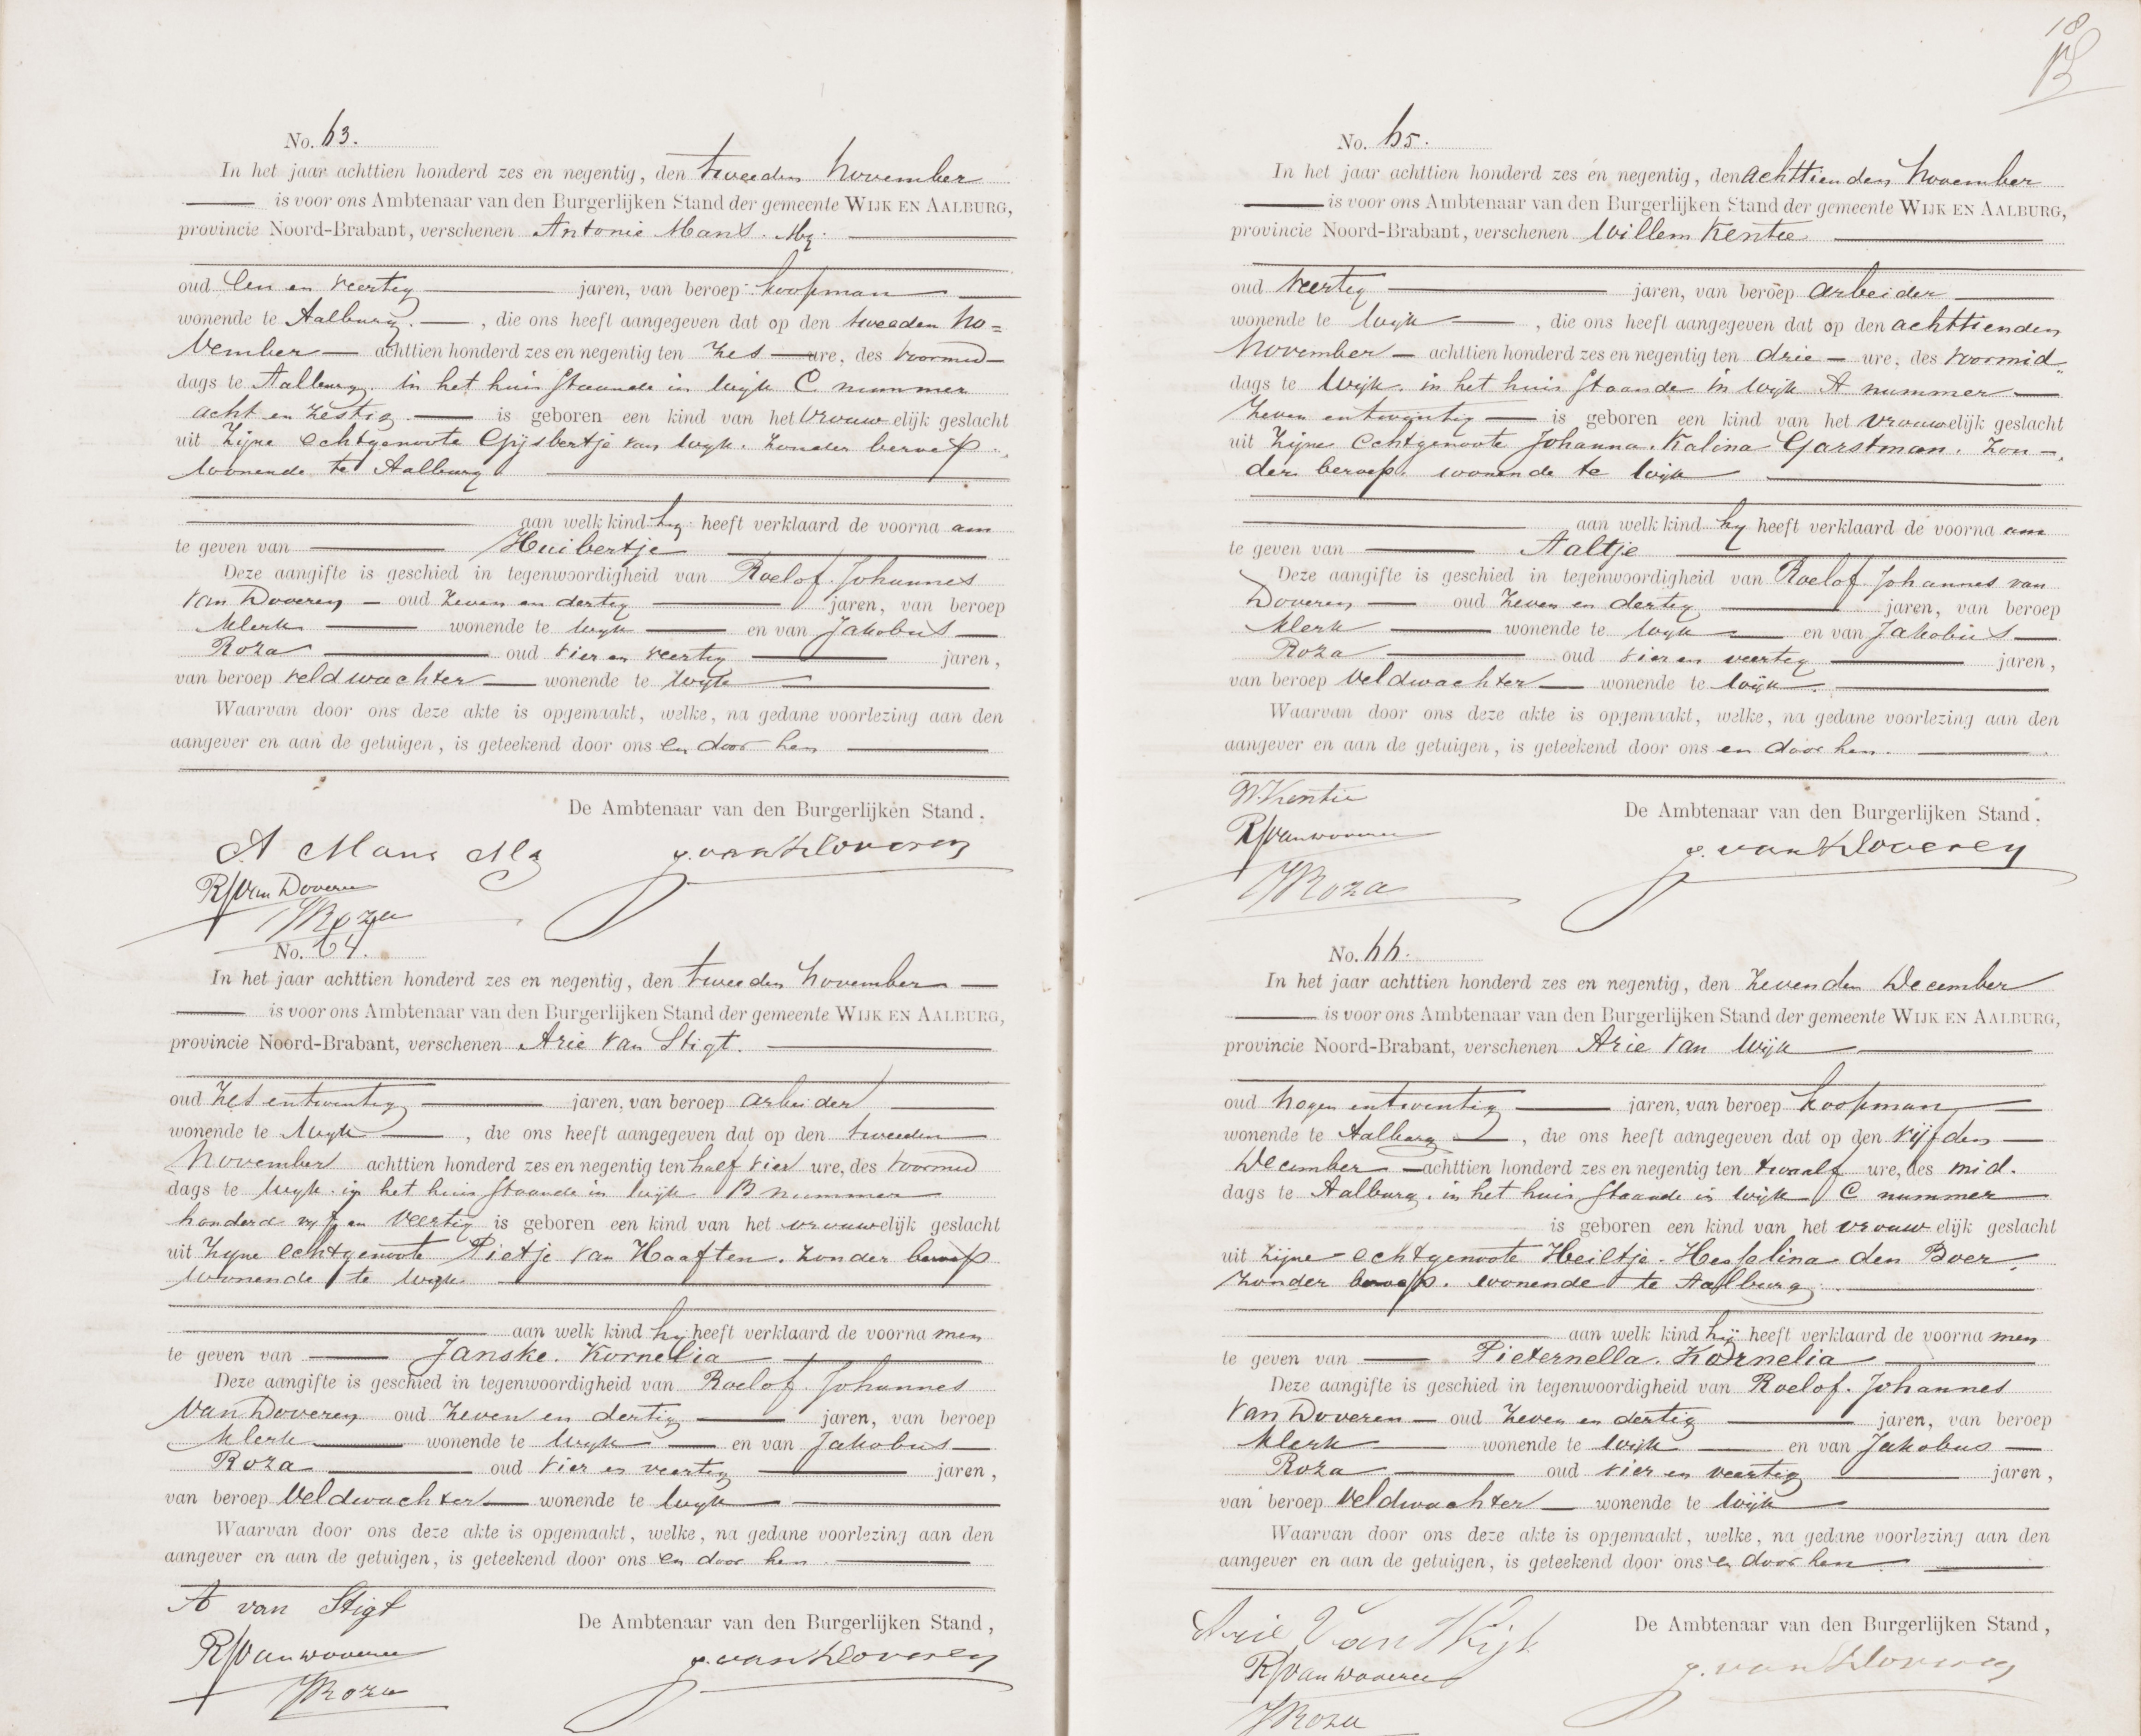 No. 63.
In het jaar achttien honderd zes en negentig, den tweeden November
is voor ons Ambtenaar van den Burgerlijken Stand der gemeente WIJK EN AALBURG,
provincie Noord-Brabant, verschenen Antonie Mans. Mz.
oud een en veertig jaren, van beroep koopman
wonende te Aalburg. , die ons heeft aangegeven dat op den tweeden No=
vember achttien honderd zes en negentig ten zes ure, des voormid
dags te Aalburg. in het huis staande in wijk C nummer
acht en zestig. is geboren een kind van het vrouwelijk geslacht
uit zijne echtgenoote Gijsbertje van Wijk. zonder beroep.
wonende te Aalburg
aan welk kind hij heeft verklaard de voornaam
te geven van Huibertje
Deze aangifte is geschied in tegenwoordigheid van Roelof Johannes
van Doveren oud zeven en dertig jaren, van beroep
klerk wonende te Wijk en van Jakobus
Roza oud vier en veertig jaren,
van beroep veldwachter wonende te Wijk
Waarvan door ons deze akte is opgemaakt, welke, na gedane voorlezing aan den
aangever en aan de getuigen, is geteekend door ons en door hen
De Ambtenaar van den Burgerlijken Stand.
A Mans Mz
RJ van Doveren
J Roza
No. 64.
In het jaar achttien honderd zes en negentig, den tweeden November
is voor ons Ambtenaar van den Burgerlijken Stand der gemeente WIJK EN AALBURG,
provincie Noord-Brabant, verschenen Arie van Stigt.
oud zes en twintig jaren, van beroep arbeider
wonende te Wijk , die ons heeft aangegeven dat op den tweeden
November achttien honderd zes en negentig ten half vier ure, des voormid
dags te Wijk. in het huis staande in wijk B nummer
honderd vijf en veertig is geboren een kind van het vrouwelijk geslacht
uit zijne echtgenoote Pietje van Haaften. zonder beroep
wonende te Wijk
aan welk kind hij heeft verklaard de voornamen
te geven van Janske. Kornelia
Deze aangifte is geschied in tegenwoordigheid van Roelof. Johannes
van Doveren oud zeven en dertig jaren, van beroep
klerk wonende te Wijk en van Jakobus
Roza oud vier en veertig jaren,
van beroep veldwachter wonende te Wijk
Waarvan door ons deze akte is opgemaakt, welke, na gedane voorlezing aan den
aangever en aan de getuigen, is geteekend door ons en door hen.
De Ambtenaar van den Burgerlijken Stand,
A van Stigt
RJ van Doveren
J Roza
18
No. 65.
In het jaar achttien honderd zes en negentig, den achttienden November
is voor ons Ambtenaar van den Burgerlijken Stand der gemeente WIJK EN AALBURG,
provincie Noord-Brabant, verschenen Willem Kentie
oud veertig jaren, van beroep arbeider
wonende te Wijk , die ons heeft aangegeven dat op den achttienden
November achttien honderd zes en negentig ten drie ure, des voormid=
dags te Wijk. in het huis staande in wijk A nummer
zeven en twintig is geboren een kind van het vrouwelijk geslacht
uit zijne echtgenoote Johanna. Kalina Garstman. zon=
der beroep. wonende te Wijk
aan welk kind hij heeft verklaard de voornaam
te geven van Aaltje
Deze aangifte is geschied in tegenwoordigheid van Roelof. Johannes van
Doveren oud zeven en dertig jaren, van beroep
klerk wonende te Wijk en van Jakobus
Roza oud vier en veertig jaren,
van beroep veldwachter wonende te Wijk.
Waarvan door ons deze akte is opgemaakt, welke, na gedane voorlezing aan den
aangever en aan de getuigen, is geteekend door ons en door hen.
De Ambtenaar van den Burgerlijken Stand.
W. Kentie
RJ van Doveren
J Roza
No. 66.
In het jaar achttien honderd zes en negentig, den zevenden December
is voor ons Ambtenaar van den Burgerlijken Stand der gemeente WIJK EN AALBURG,
provincie Noord-Brabant, verschenen Arie van Wijk
oud negen en twintig jaren, van beroep koopman
wonende te Aalburg , die ons heeft aangegeven dat op den vijfden
December achttien honderd zes en negentig ten twaalf ure, des mid.
dags te Aalburg. in het huis staande in wijk C nummer
is geboren een kind van het vrouwelijk geslacht
uit zijne echtgenoote Heiltje. Hesselina den Boer,
zonder beroep. wonende te Aalburg.
aan welk kind hij heeft verklaard de voornamen
te geven van Pieternella. Kornelia
Deze aangifte is geschied in tegenwoordigheid van Roelof. Johannes
van Doveren oud zeven en dertig jaren, van beroep
klerk wonende te Wijk en van Jakobus
Roza oud vier en veertig jaren,
van beroep veldwachter wonende te Wijk
Waarvan door ons deze akte is opgemaakt, welke, na gedane voorlezing aan den
aangever en aan de getuigen, is geteekend door ons en door hen.
De Ambtenaar van den Burgerlijken Stand,
Arie Van Wijk
RJ van Doveren
J Roza